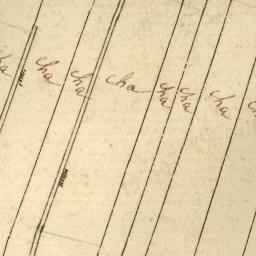 cha cha cha cha cha cha cha